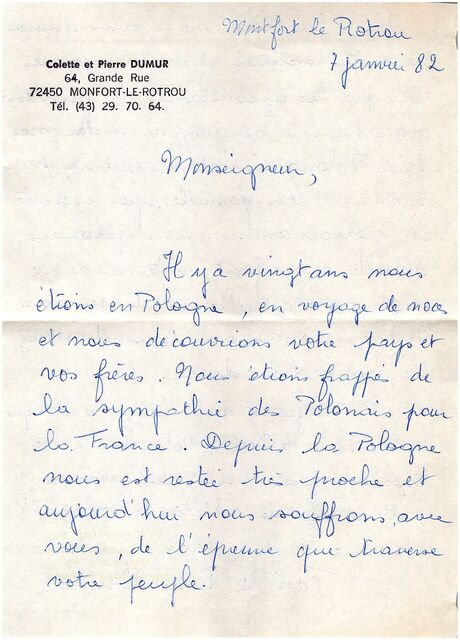 Montfort le Rotrou
7 janvier 82
Colette et Pierre DUMUR
64, Grande Rue
72450 MONFORT-LE-ROTROU
Tél. (43) 29. 70. 64.
Monseigneur,
Il y a vingt ans nous
étions en Pologne, en voyage de noces
et nous découvrions votre pays et
vos frères. Nous étions frappés de
la sympathie des Polonais pour
la France. Depuis la Pologne
nous est restée très proche et
aujourd'hui nous souffrons, avec
vous, de l'épreuve que traverse
votre peuple.